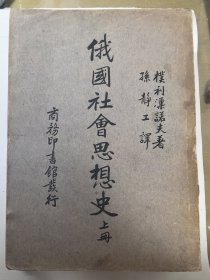 樸利漢諾夫著
孫靜工譯
俄國社會思想史上冊
商務印書館發行